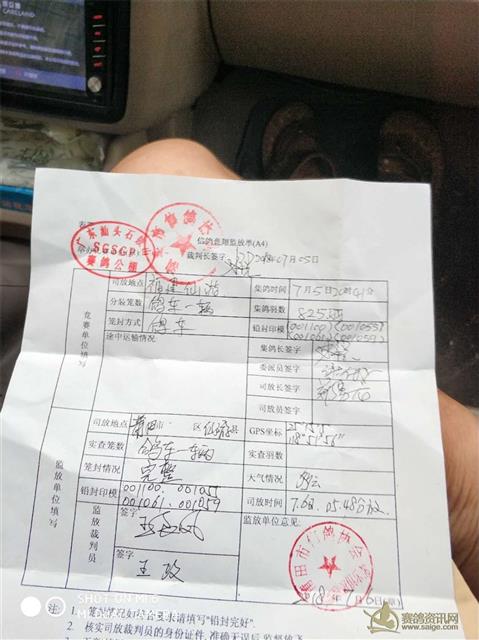 CARELAND
信鸽竞翔监放单(A4)
广东汕头石
SGSGP
赛鸽公棚
裁判长签字 2018年07月05日
司放地点 福建仙游 集鸽时间 7月5日20时41分
分装笼数 鸽车一辆 集鸽羽数 825羽
笼封方式 鸽车 铅封印模 (001100)(001055)
途中运输情况: (001061)(001059)
集鸽长签字
委派员签字
司放长签字
司放员签字
竞赛单位填写
司放地点 莆田市 区仙游县 GPS坐标 25°15′15″
118°51′56″
实查笼数 鸽车一辆 实查羽数
笼封情况 完整 天气情况 多云
铅封印模 001100. 001055
001061. 001059 司放时间 7.6日.05.48分放
监放裁判员 签字 监放单位意见:
签字
王政
监放单位填写
莆田市信鸽协会
注: 1. 笼封情况如符合要求请填写"铅封完好"。
2. 核实司放裁判员的身份证件,准确无误后,监督放飞
SHOT ON MI 6
MI DUAL CAMERA
赛鸽资讯网
www.saige.com